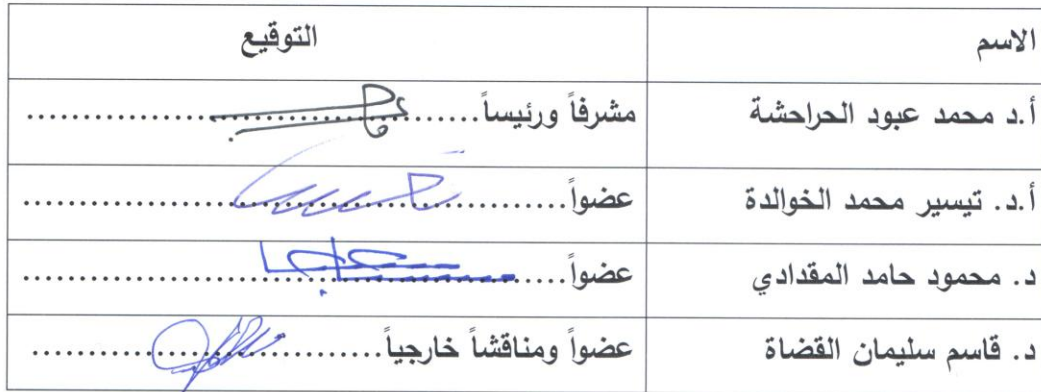 الاسم التوقيع
أ.د محمد عبود الحراحشة مشرفاً ورئيساً..............................
أ.د. تيسير محمد الخوالدة عضواً..............................
د. محمود حامد المقدادي عضواً..............................
د. قاسم سليمان القضاة عضواً ومناقشاً خارجياً..............................